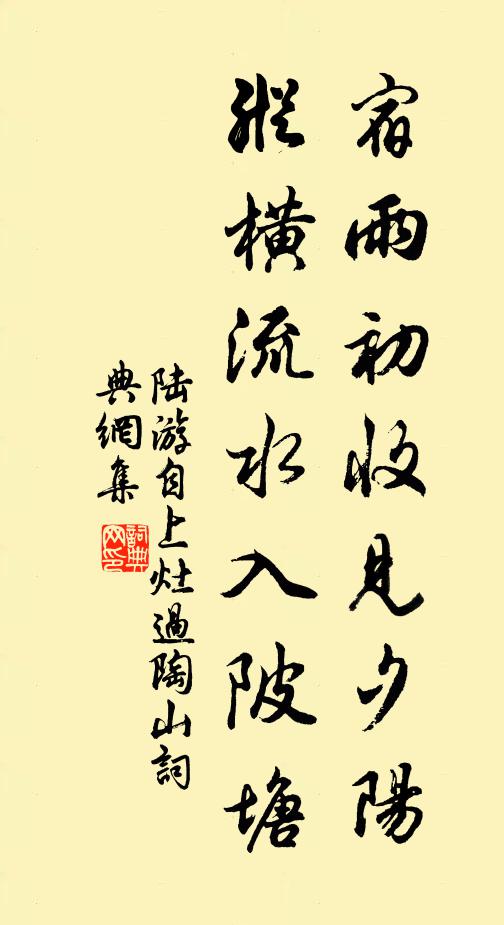 宿雨初收見夕陽
縱橫流水入陂塘
陆游自上灶過陶山詞
典網集
詞典网印